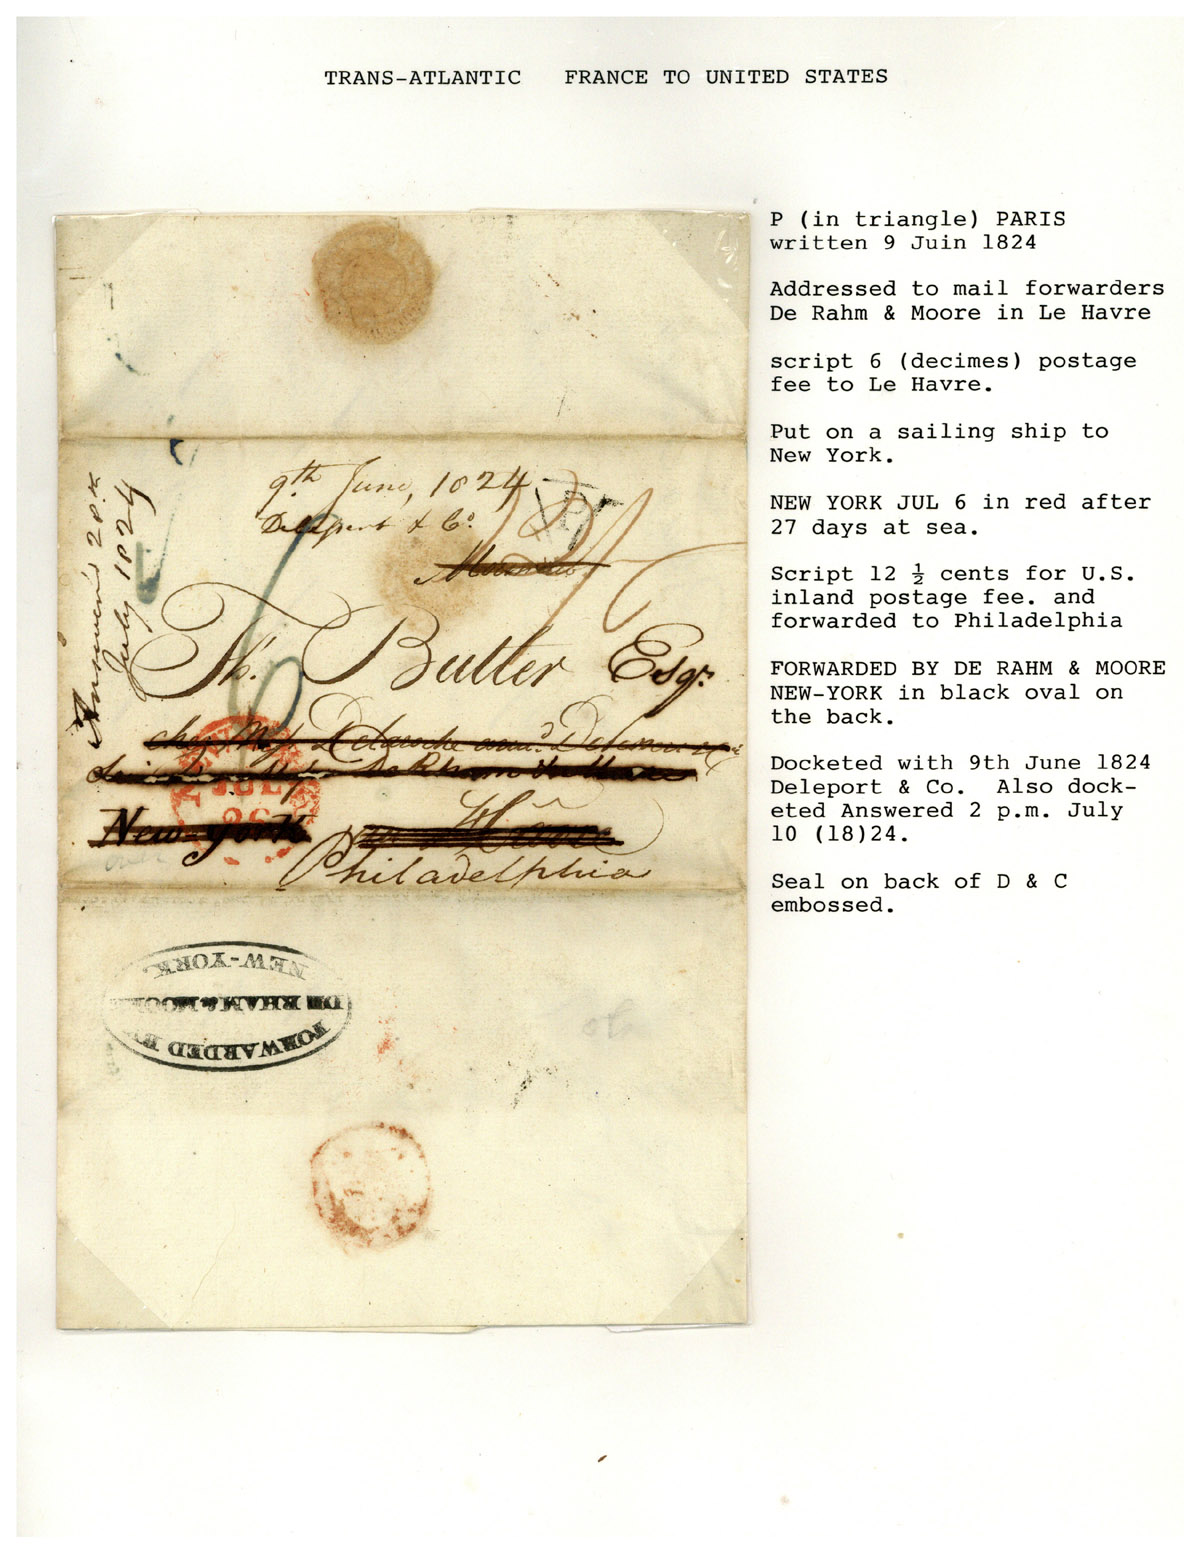 TRANS-ATLANTIC FRANCE TO UNITED STATES
P (in triangle) PARIS
written 9 Juin 1824
Addressed to mail forwarders
De Rahm & Moore in Le Havre
script 6 (decimes) postage
fee to Le Havre.
Put on a sailing ship to
New York.
NEW YORK JUL 6 in red after
27 days at sea.
Script 12 ½ cents for U.S.
inland postage fee. and
forwarded to Philadelphia
FORWARDED BY DE RAHM & MOORE
NEW-YORK in black oval on
the back.
Docketed with 9th June 1824
Deleport & Co. Also dock-
eted Answered 2 p.m. July
10 (18)24.
Seal on back of D & C
embossed.
9th June, 1824
& Co.
P
6
July 1824
Th. Butler Esqr.
chez
JUL
26
New-York
Philadelphia
over
FORWARDED BY
DE RHAM & MOORE
NEW-YORK.